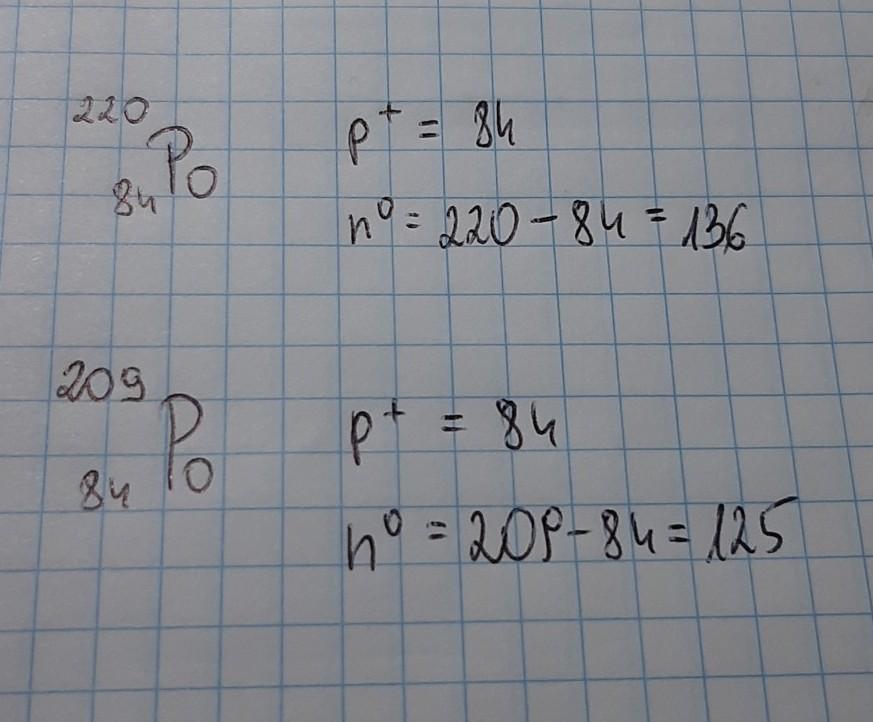 ²²⁰₈₄Po
p⁺ = 84
n⁰ = 220 - 84 = 136
²⁰⁹₈₄Po
p⁺ = 84
n⁰ = 209 - 84 = 125